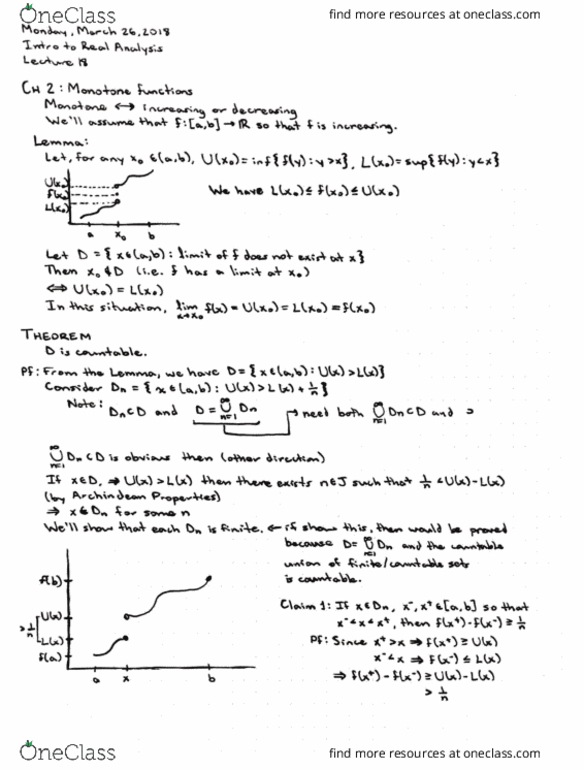 OneClass
find more resources at oneclass.com
Monday, March 26, 2018
Intro to Real Analysis
Lecture 18
CH 2: Monotone functions
Monotone ↔ increasing or decreasing
We'll assume that f:[a,b]→ℝ so that f is increasing.
Lemma:
Let, for any x₀ ∈(a,b), U(x₀)=inf{f(y): y>x}, L(x₀)=sup{f(y): y<x}
U(x₀)
f(x₀)
L(x₀)
We have L(x₀)≤ f(x₀)≤U(x₀)
a x₀ b
Let D = {x∈(a,b): limit of f does not exist at x}
Then x₀ ∉ D (i.e. f has a limit at x₀)
⟺ U(x₀) = L(x₀)
In this situation, lim x→x₀ f(x) = U(x₀) = L(x₀) = f(x₀)
THEOREM
D is countable.
Pf: From the Lemma, we have D = {x∈(a,b): U(x)>L(x)}
Consider Dn = {x∈(a,b): U(x)>L(x)+1/n}
Note: Dn⊂D and D = ∞∪n=1 Dn → need both ∞∪n=1 Dn⊂D and ⊃
∞∪n=1 Dn⊂D is obvious then (other direction)
If x∈D, ⇒ U(x)>L(x) then there exists n∈J such that 1/n < U(x)-L(x)
(by Archindean Properties)
⇒ x∈Dn for some n
We'll show that each Dn is finite. ← if show this, then would be proved
because D= ∞∪n=1 Dn and the countable
union of finite/countable sets
is countable.
f(b)
U(x)
>1/n
L(x)
f(a)
a x b
Claim 1: If x∈Dn, x⁻,x⁺∈[a,b] so that
x⁻<x<x⁺, then f(x⁺)-f(x⁻)≥1/n
Pf: Since x⁺>x ⇒ f(x⁺)≥U(x)
x⁻<x ⇒ f(x⁻)≤L(x)
⇒ f(x⁺)-f(x⁻)≥U(x)-L(x)
>1/n
OneClass
find more resources at oneclass.com